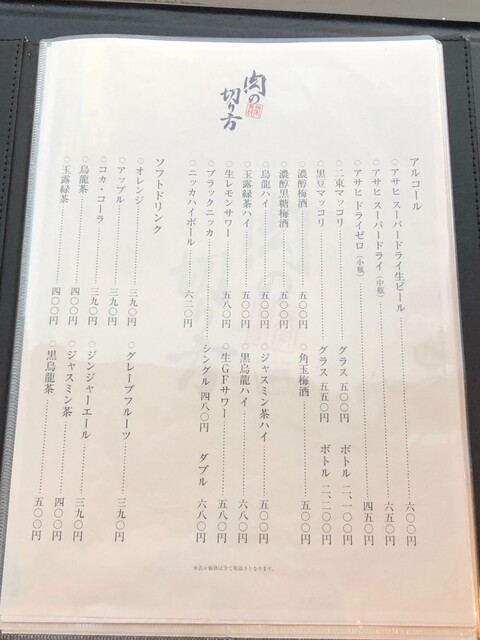 肉の
切り方
アルコール
○アサヒ スーパードライ生ビール 六〇〇円
○アサヒ スーパードライ(中瓶) 六五〇円
○アサヒ ドライゼロ(小瓶) 四五〇円
○二東マッコリ グラス 五〇〇円 ボトル 二、一〇〇円
○黒豆マッコリ グラス 五五〇円 ボトル 二、二〇〇円
○濃醇梅酒 五〇〇円 ○角玉梅酒 五〇〇円
○濃醇黒糖梅酒 五〇〇円
○烏龍ハイ 五〇〇円 ○ジャスミン茶ハイ 五〇〇円
○玉露緑茶ハイ 五〇〇円 ○黒烏龍ハイ 六八〇円
○生レモンサワー 五八〇円 ○生GFサワー 五八〇円
○ブラックニッカ シングル 四八〇円 ダブル 六八〇円
○ニッカハイボール 六二〇円
ソフトドリンク
○オレンジ 三九〇円 ○グレープフルーツ 三九〇円
○アップル 三九〇円
○コカ・コーラ 三九〇円 ○ジンジャーエール 三九〇円
○烏龍茶 四〇〇円 ○ジャスミン茶 四〇〇円
○玉露緑茶 四〇〇円 ○黒烏龍茶 五〇〇円
※表示価格は全て税抜きとなります。